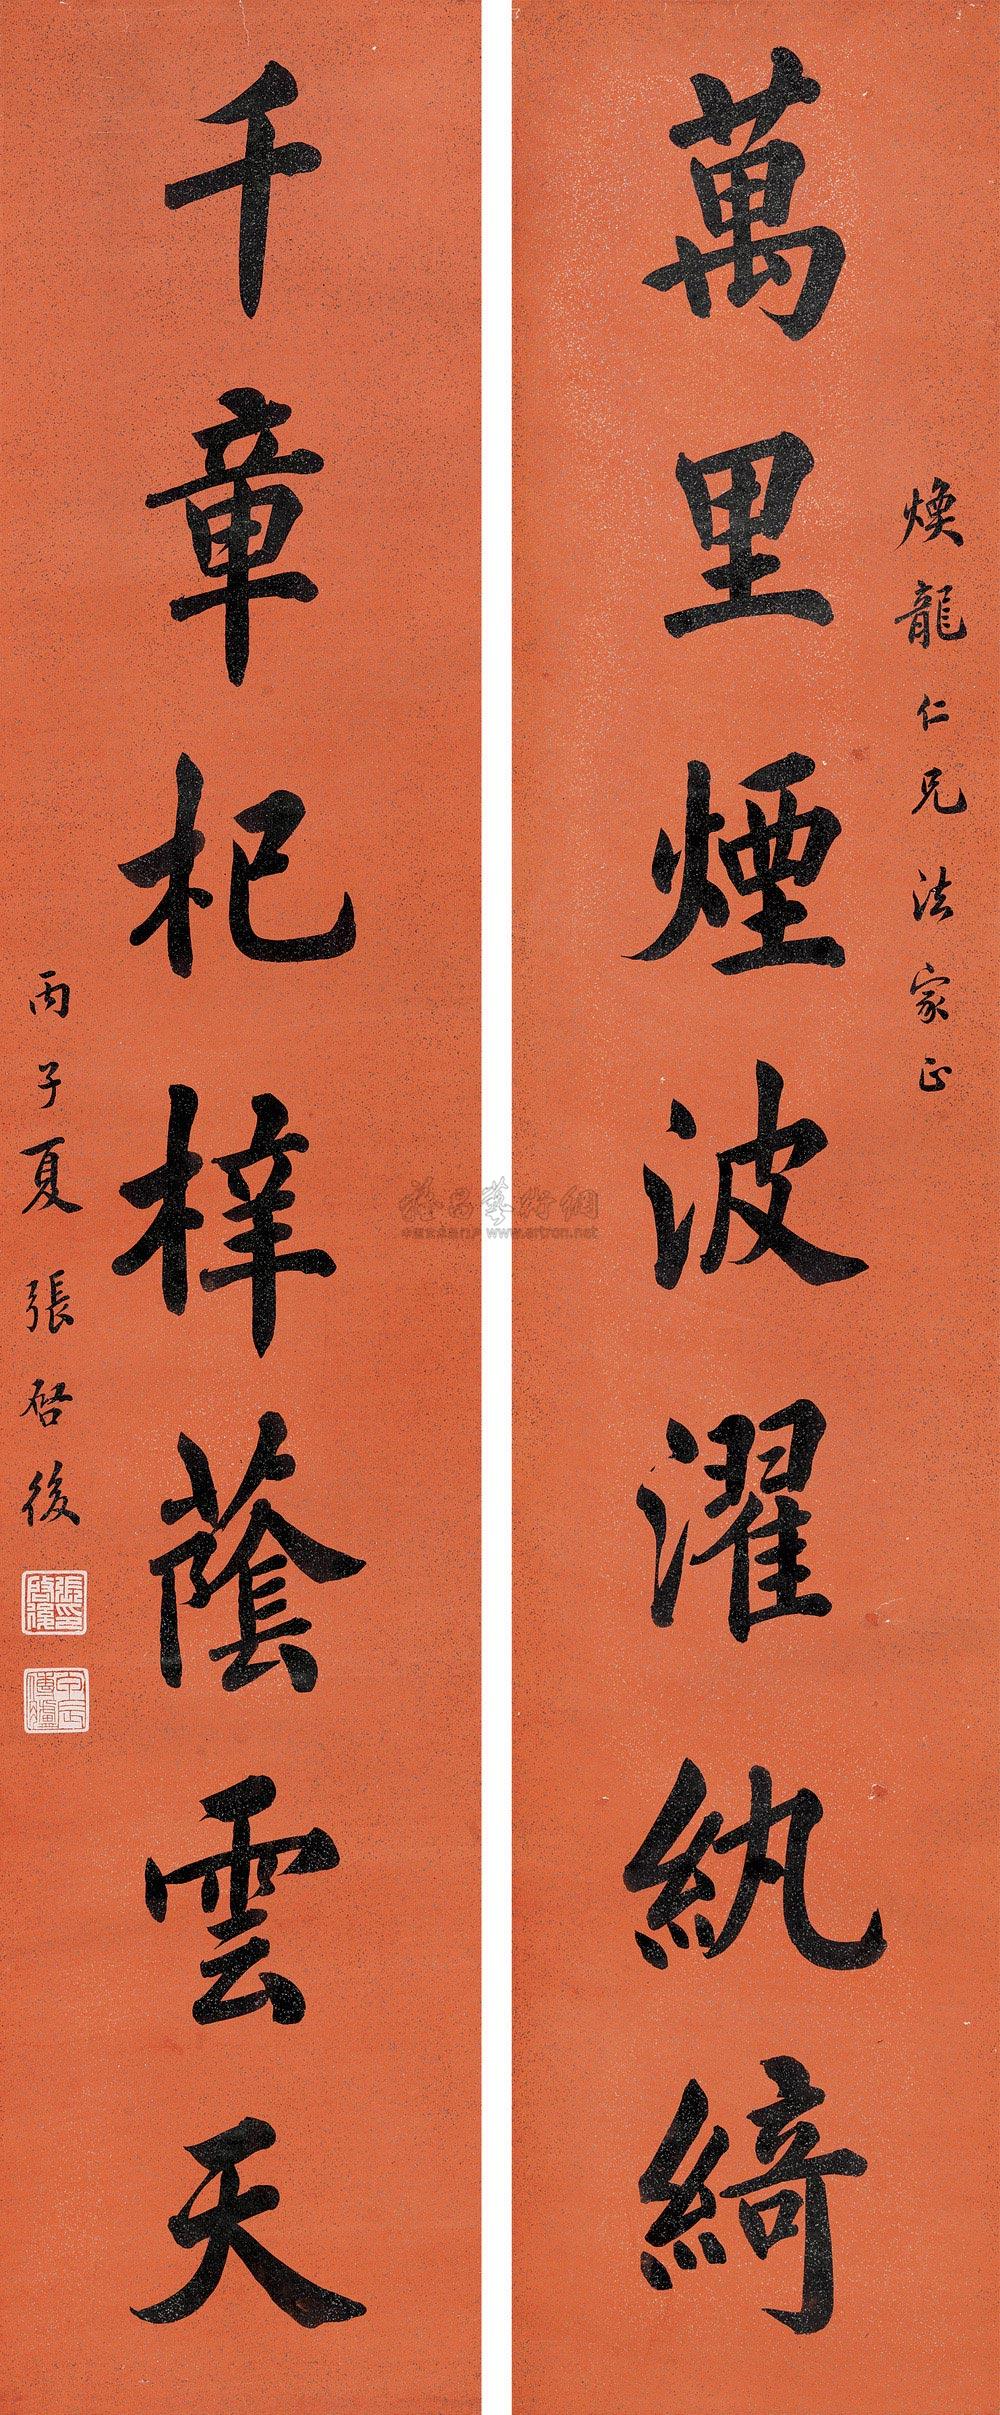 煥龍仁兄法家正
萬里煙波濯紈綺
千章杞梓蔭雲天
丙子夏張啓後
張啓後印
甲辰傳臚
www.artron.net